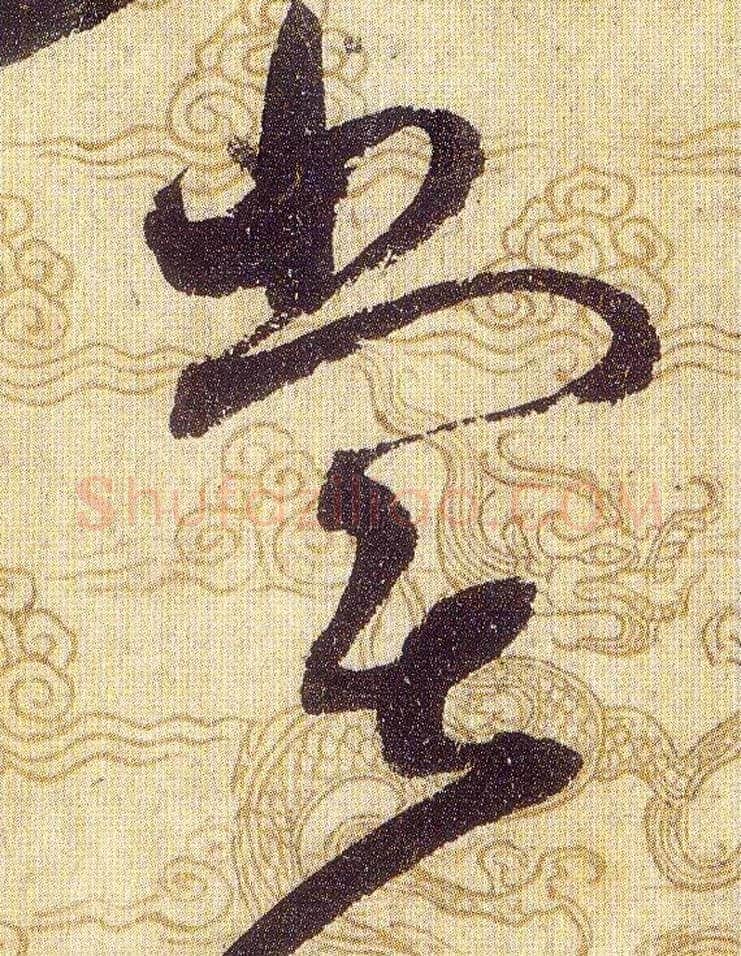 堂
Shufaziliao.COM